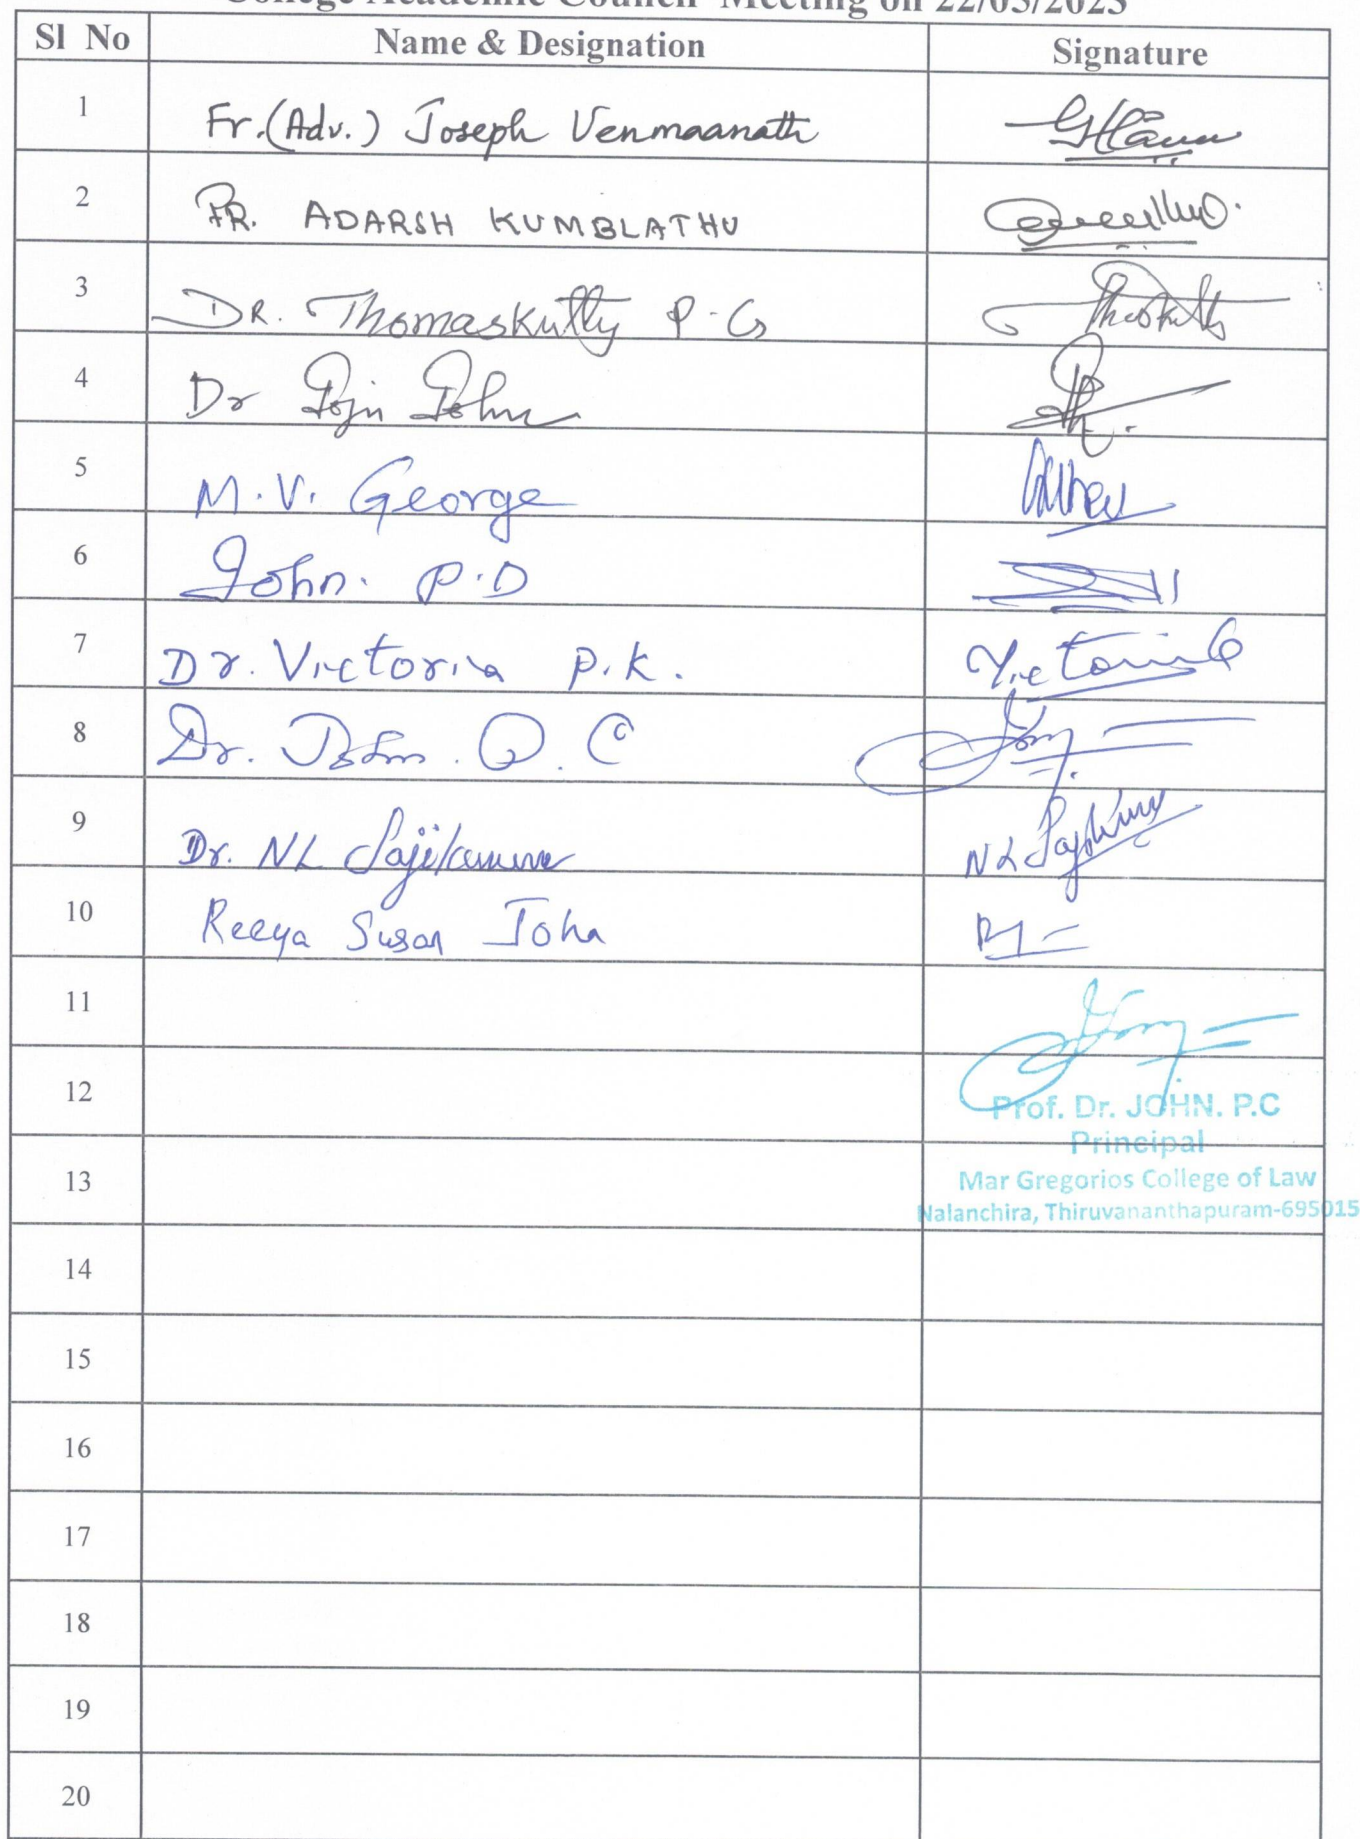 College Academic Council Meeting on 22/05/2023
Sl No Name & Designation Signature
1 Fr. (Adv.) Joseph Venmaanath
2 FR. ADARSH KUMBLATHU
3 DR. Thomaskutty P.G
4 Dr Joju John
5 M.V. George
6 John. P.D
7 Dr. Victoria P.K. Victoria
8 Dr. John. P. C
9 Dr. NL Sajikumar NL Sajikumar
10 Reeya Susan John
11
12
Prof. Dr. JOHN. P.C
Principal
13 Mar Gregorios College of Law
Nalanchira, Thiruvananthapuram-695015
14
15
16
17
18
19
20